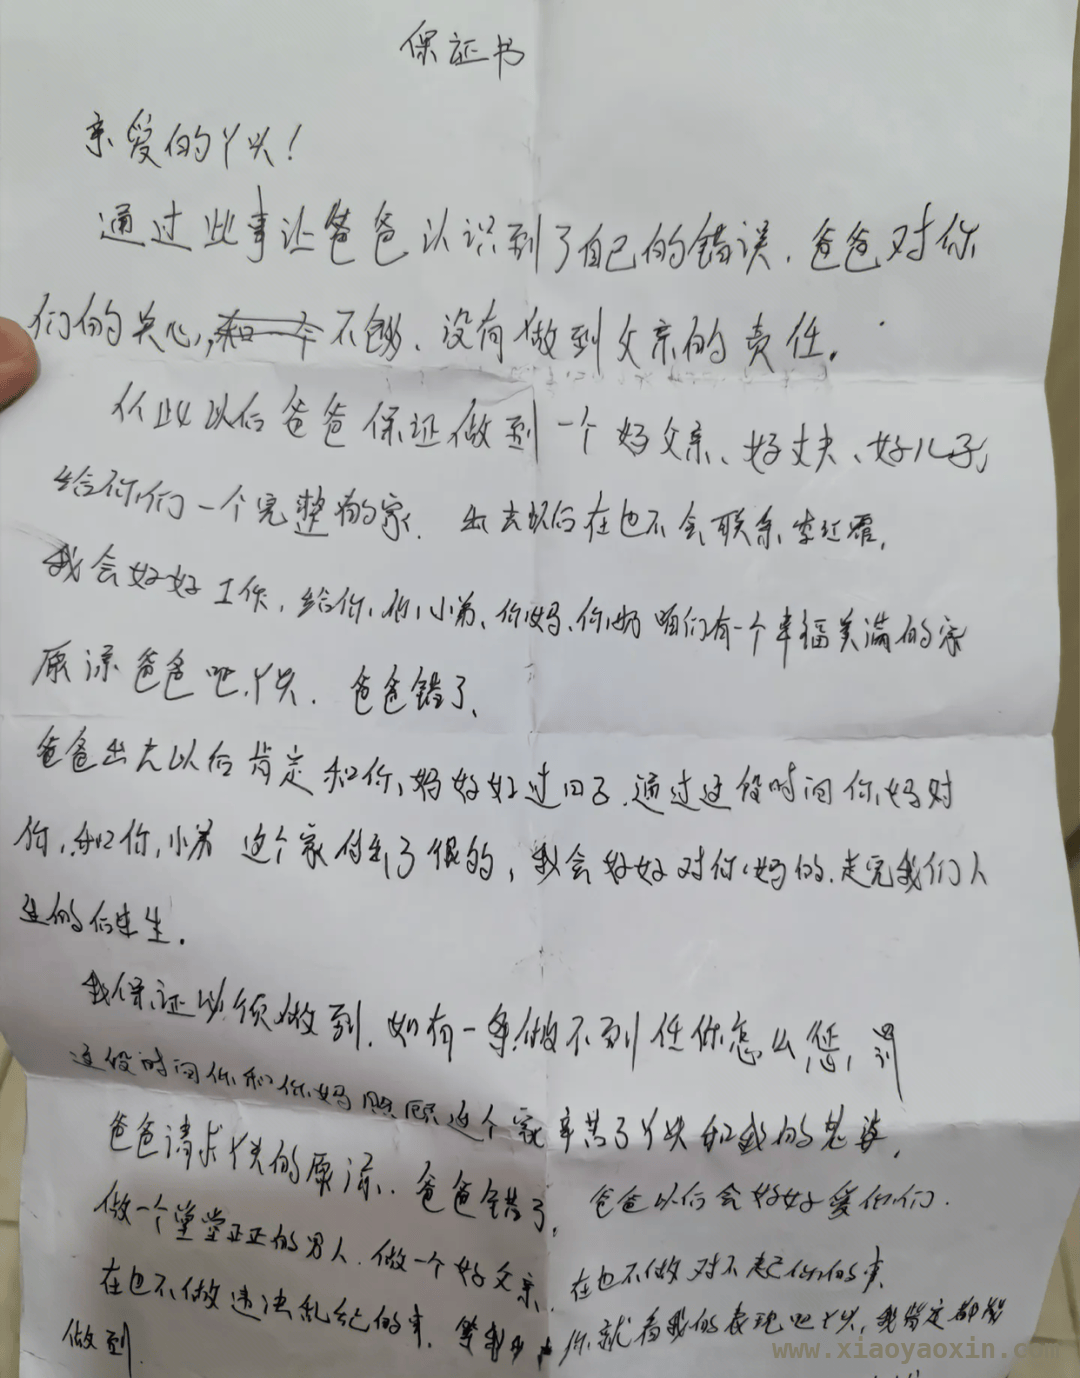 保证书
亲爱的丫头!
通过此事让爸爸认识到了自己的错误.爸爸对你
们的关心,不够、没有做到父亲的责任.
从此以后爸爸保证做到一个好父亲、好丈夫、好儿子,
给你们一个完整的家. 出去以后在也不会联系李红霞,
我会好好工作,给你,你小弟、你妈、你奶咱们有一个幸福美满的家
原谅爸爸吧,丫头. 爸爸错了、
爸爸出去以后肯定和你妈好好过日子.通过这段时间你妈对
你,和你小弟 这个家付出了很的,我会好好对你妈的.走完我们人
生的后半生.
我保证必须做到.如有一条做不到任你怎么惩罚
这段时间你和你妈照顾这个家辛苦了丫头和我的老婆,
爸爸请求丫头的原谅.爸爸错了, 爸爸以后会好好爱你们.
做一个堂堂正正的男人.做一个好父亲、在也不做对不起你们的事.
在也不做违法乱纪的事. 等我出去你就看我的表现吧丫头,我肯定都能
做到.
www.xiaoyaoxin.com